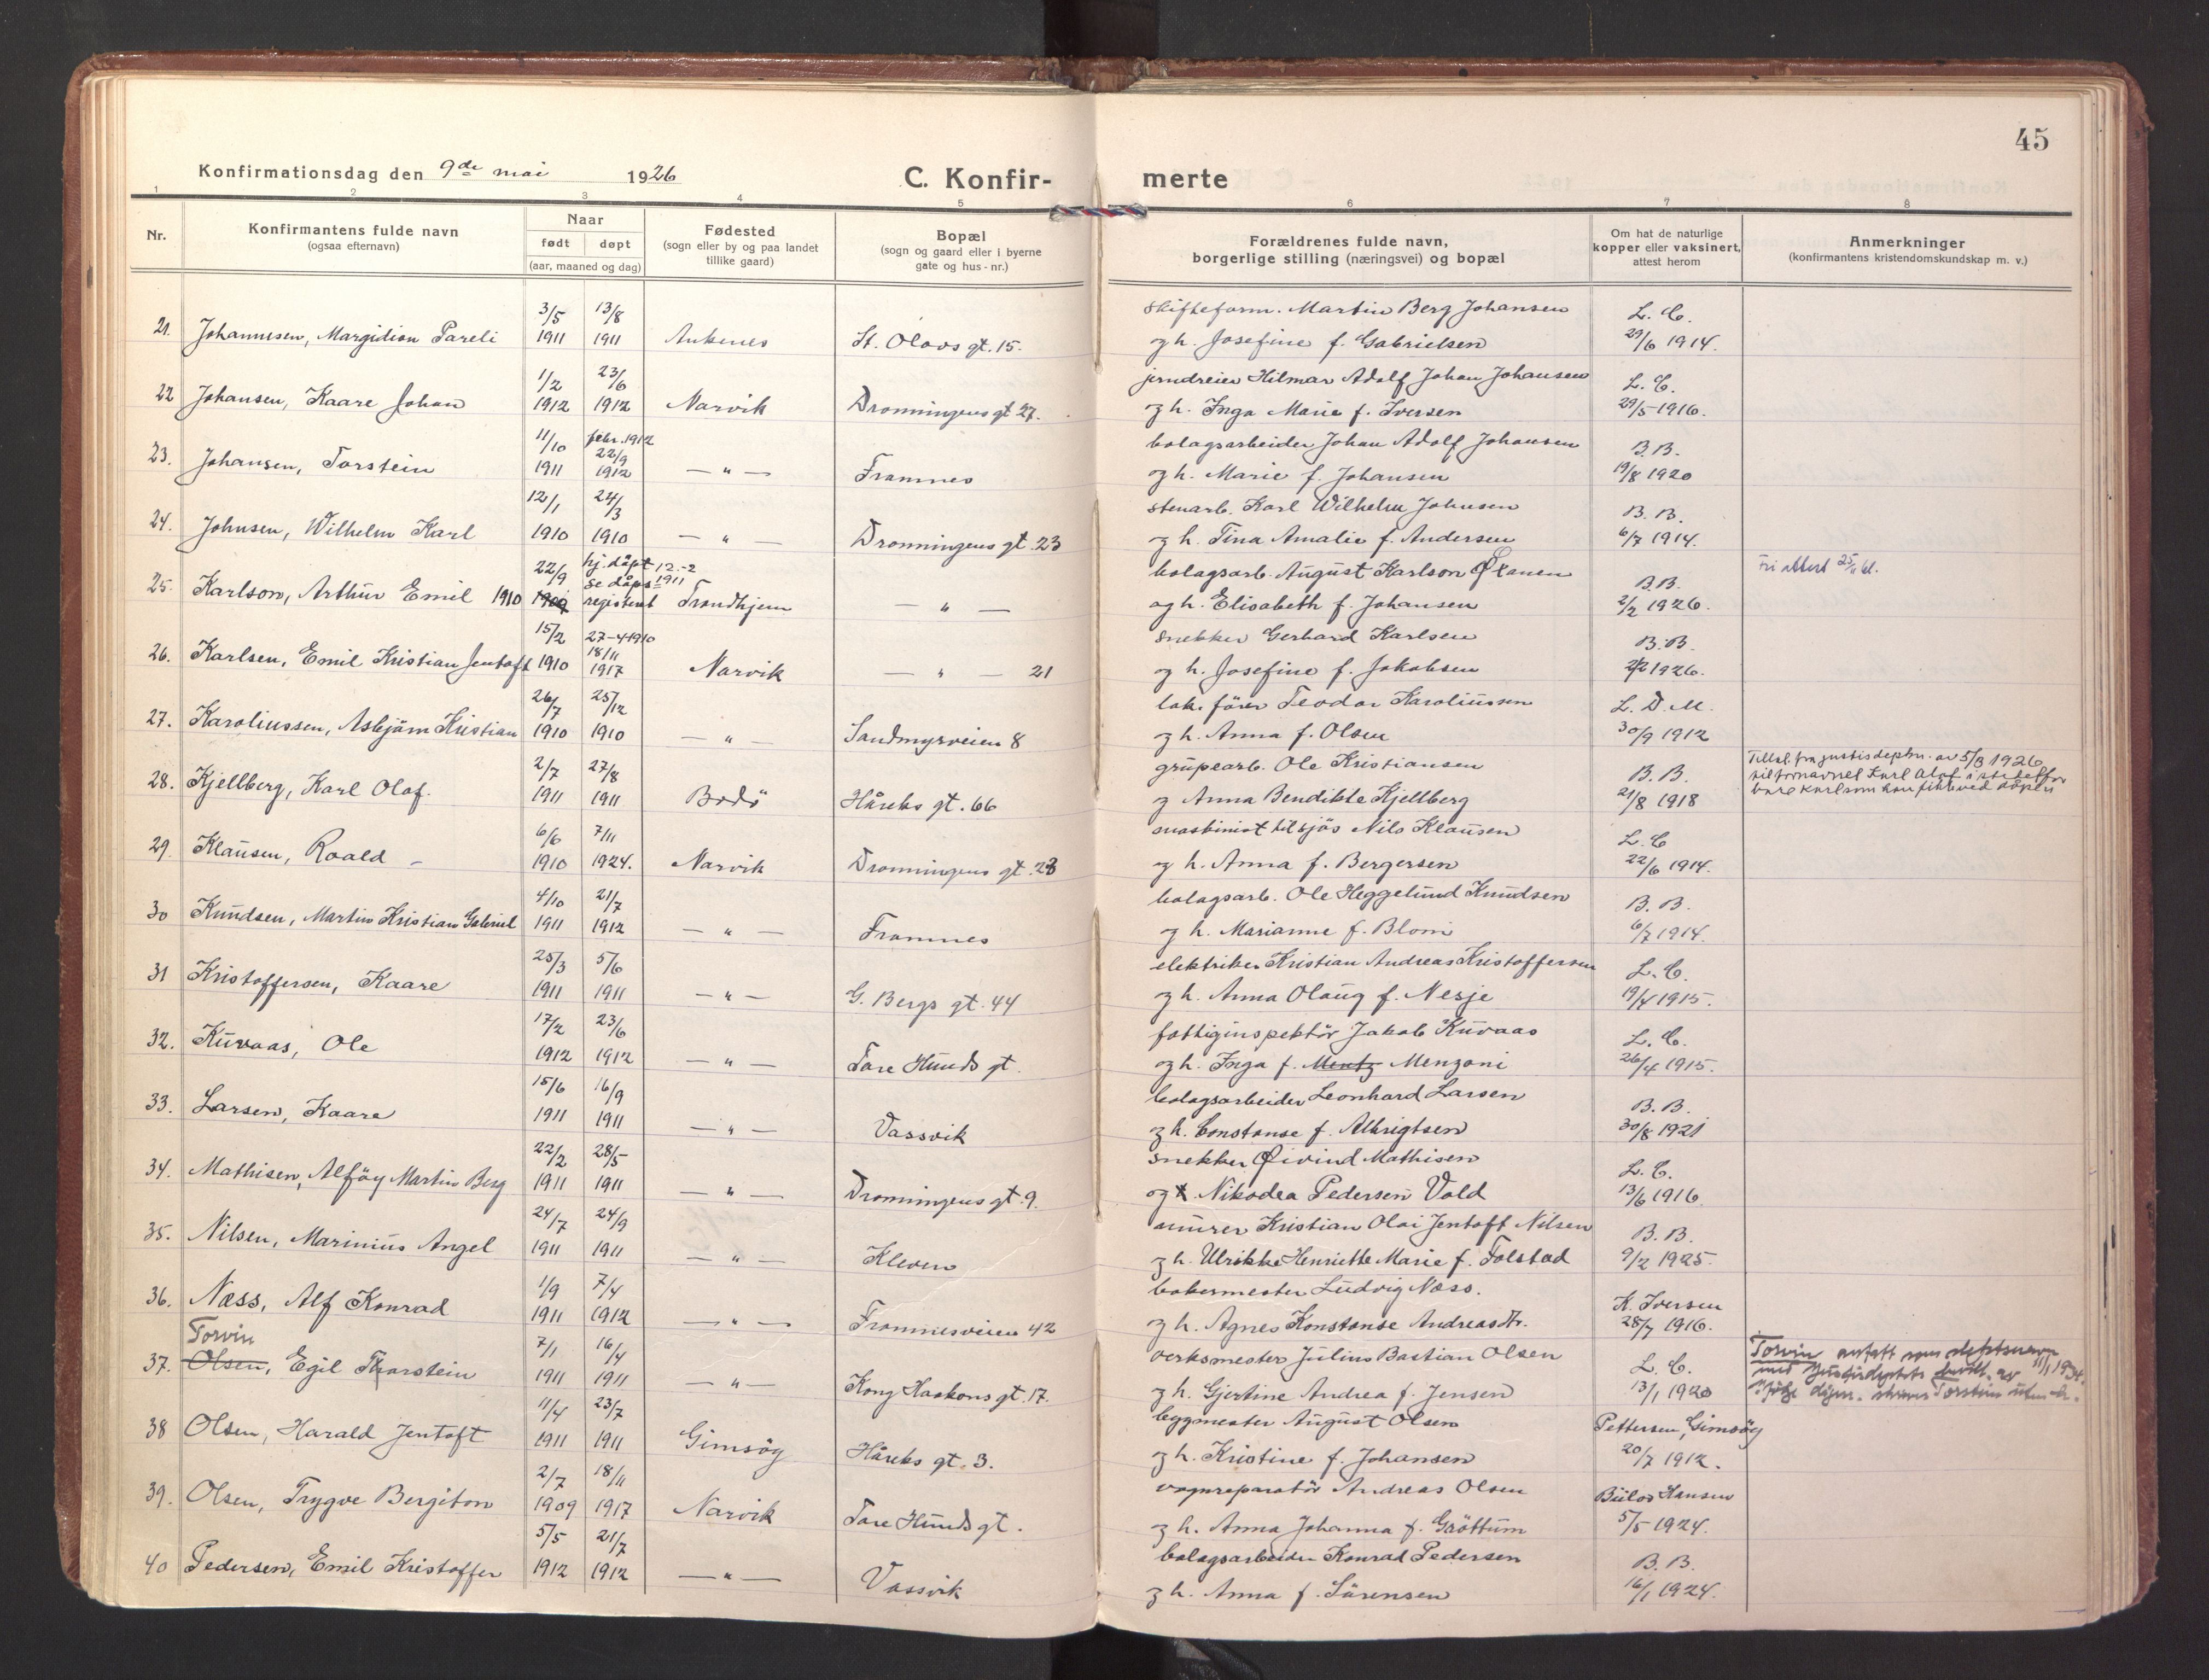 45
Konfirmationsdag den 9de mai 1926
C. Konfir- merte
1 2 3 4 5 6 7 8
Nr.
Konfirmantens fulde navn
(ogsaa efternavn)
Naar
født døpt
(aar, maaned og dag)
Fødested
(sogn eller by og paa landet
tillike gaard)
Bopæl
(sogn og gaard eller i byerne
gate og hus-nr.)
Forældrenes fulde navn,
borgerlige stilling (næringsvei) og bopæl
Om hat de naturlige
kopper eller vaksinert,
attest herom
Anmerkninger
(konfirmantens kristendomskundskap m. v.)
3/5 13/8 skifteform. Martin Berg Johansen L. C.
21. Johannesen, Margidion Pareli 1911 1911 Ankenes St. Olavs gt. 15. og h. Josefine f. Gabrielsen 29/6 1914.
1/2 23/6 jerndreier Hilmar Adolf Johan Johansen L. C.
22 Johansen, Kaare Johan 1912 1912 Narvik Dronningens gt 27. og h. Inga Marie f. Iversen 29/5 1916.
11/10 febr. 1912 22/9 bolagsarbeider Johan Adolf Johansen B.B.
23. Johansen, Torstein 1911 1912 — " — Framnes og h. Marie f. Johansen 19/8 1920
12/1 24/3 stenarb. Karl Wilhelm Johnsen B. B.
24. Johnsen, Wilhelm Karl 1910 1910 — " — Dronningens gt. 23 og h. Tina Amalie f. Andersen 6/7 1914.
22/9 hj. døpt 12.-2 1911 se dåps bolagsarb. August Karlson B.B. Fri attest 25/11 61.
25. Karlson, Arthur Emil 1910 1909 registeret Trondhjem — " — og h. Elisabeth f. Johansen 2/2 1926.
15/2 27-4-1910 18/11 snekker Gerhard Karlsen B.B.
26. Karlsen, Emil Kristian Jentoft 1910 1917 Narvik — " — 21 og h. Josefine f. Jakobsen 2/2 1926.
26/7 25/12 lok. fører Teodor Karoliussen L. D. M.
27. Karoliussen, Asbjörn Kristian 1910 1910 — " — Sandmyrveien 8 og h. Anna f. Olsen 30/9 1912
2/7 27/8 grupearb. Ole Kristiansen B. B. Tillat. fra justisdeptm. av 5/8 1926
28. Kjellberg, Karl Olof. 1911 1911 Bodö Håreks gt. 66 og Anna Bendikte Kjellberg 21/8 1918 til fornavnet Karl Olof i stedet for
bare Karl som han fikk ved dåpen
6/6 7/11 maskinist tilsjøs Nils Klausen L. C
29. Klausen, Roald - 1910 1924. Narvik Dronningens gt. 23 og h. Anna f. Bergersen 22/6 1914.
4/10 21/7 bolagsarb. Ole Heggelund Knudsen B. B.
30 Knudsen, Martin Kristian Gabriel 1911 1912 — " — Framnes og h. Marianne f. Blom 6/7 1914.
25/3 5/6 elektriker Kristian Andreas Kristoffersen L. C.
31 Kristoffersen, Kaare 1911 1911 — " — G. Bergs gt. 44 og h. Anna Olaug f. Nesje 19/4 1915.
17/2 23/6 fattiginspektör Jakob Kuvaas L. C.
32. Kuvaas, Ole 1912 1912 — " — Tore Hunds gt. og h. Inga f. Mentz Menzoni 26/4 1915.
15/6 16/9 bolagsarbeider Leonhard Larsen B. B.
33. Larsen, Kaare 1911 1911 — " — Vassvik og h. Constanse f. Albrigtsen 30/8 1921
22/2 28/5 snekker Øivind Mathisen L. C.
34. Mathisen, Alföy Martin Berg 1911 1911 — " — Dronningens gt. 9. og Nikodea Pedersen Vold 13/6 1916
24/7 24/9 murer Kristian Olai Jentoft Nilsen B. B.
35. Nilsen, Marinius Angel 1911 1911 — " — Kleven og h. Ulrikke Henriette Marie f. Tolstad 9/2 1925.
1/9 7/4 bakermester Ludvig Næss. K. Iversen
36. Næss, Alf Konrad 1911 1912 — " — Framnesveien 42 og h. Agnes Konstanse Andreasdtr. 28/7 1916.
Torvin 7/1 16/4 verksmester Julius Bastian Olsen L. C. Torvin antatt som slektsnavn
37. Olsen, Egil Thorstein 1911 1911 — " — Kong Haakons gt. 17. og h. Gjertine Andrea f. Jensen 13/1 1920 med Justisdeptets bevill. av 11/1 1934.
Torstein uten h.
11/4 23/7 byggmester August Olsen Pettersen, Gimsöy
38 Olsen, Harald Jentoft 1911 1911 Gimsöy Håreks gt. 3. og h. Kristine f. Johansen 20/7 1912.
2/7 18/11 vognreparatör Andreas Olsen Bülow Hansen
39. Olsen, Trygve Bergiton 1909 1917 Narvik Tore Hunds gt. og h. Anna Johanna f. Gröttum 5/5 1924.
5/5 21/7 bolagsarbeider Konrad Pedersen B. B.
40 Pedersen, Emil Kristoffer 1912 1912 — " — Vassvik og h. Anna f. Sörensen 16/1 1924.